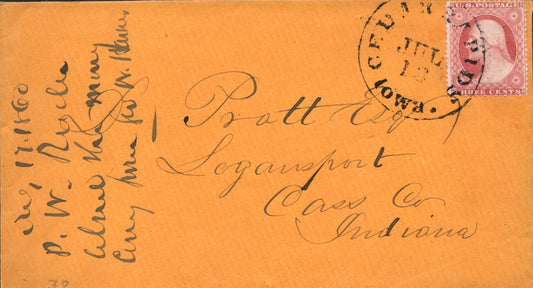 CEDAR RAPIDS
IOWA.
JUL
13
U.S. POSTAGE
THREE CENTS
Pratt Esq
Logansport
Cass Co
Indiana
17. 1860
P. W.
about the
for
30